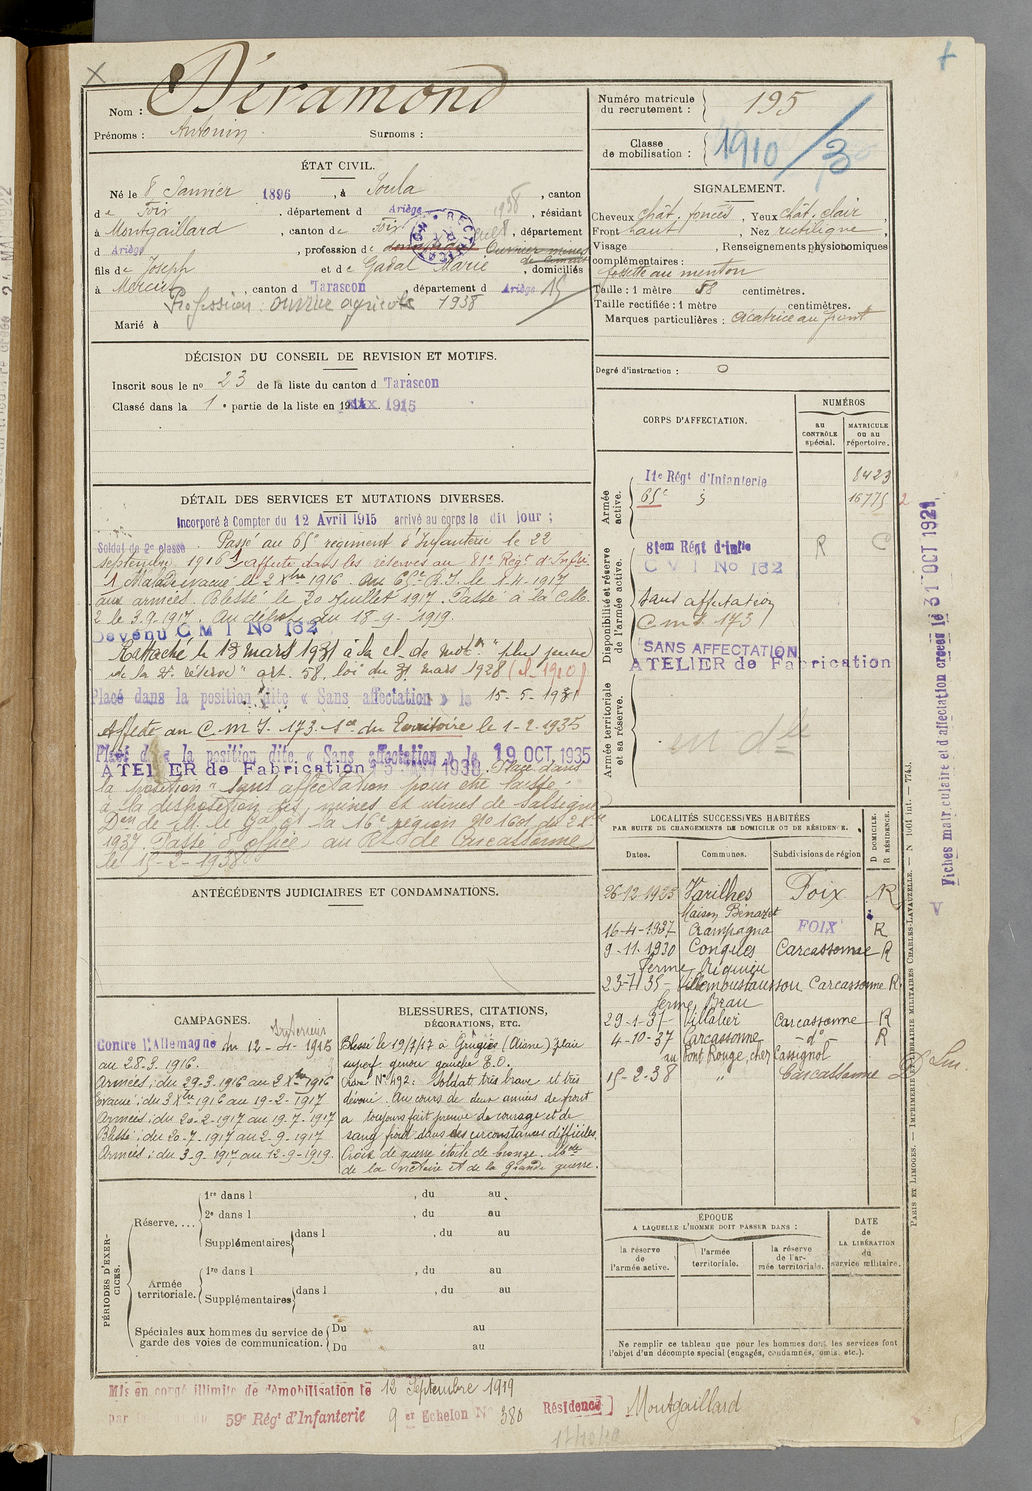 Nom : Déramond
Prénoms : Antonin Surnoms :
ÉTAT CIVIL.
Né le 8 Janvier 1896, à Soula, canton
de Foix, département d Ariège, résidant
à Montgaillard, canton de Foix, département
d Ariège, profession de Ouvrier mines
fils de Joseph et de Gadal Marie, domiciliés
à Mercus, canton d Tarascon, département d Ariège 15
Profession : ouvrier agricole 1938
Marié à
DÉCISION DU CONSEIL DE REVISION ET MOTIFS.
Inscrit sous le no 23 de la liste du canton d Tarascon
Classé dans la 1e partie de la liste en 1915
DÉTAIL DES SERVICES ET MUTATIONS DIVERSES.
Incorporé à Compter du 12 Avril 1915 arrivé au corps le dit jour ;
Soldat de 2e classe. Passé au 65e régiment d'Infanterie le 22
septembre 1916 affecté dans les réserves au 81e Régt d'Infie
Malade évacué le 2 Xbre 1916. Au 65e R.I. le 8-4-1917
aux armées. Blessé le 20 Juillet 1917. Passé à la C.M.
2 le 3.9.1917. Au dépôt du 18-9-1919.
Devenu C M I No 162
Rattaché le 13 mars 1931 à la cl. de mobon "plus jeune
de la 2e réserve" art. 58, loi du 31 mars 1928 (cl. 1910)
Placé dans la position dite « Sans affectation » le 15-5-1931
Affecté au C.M.I. 173. du Territoire le 1-2-1935
Placé dans la position dite « Sans affectation » le 19 OCT. 1935
ATELIER de Fabrication 1938. Placé dans
la position "sans affectation" pour être laissé
à la disposition des mines et usines de Salsigne
Don de M. le Gal Ct la 16e région No 1601 du 2 Xbre
1937. Passé d'office au Rt de Carcassonne
le 15-2-1938.
ANTÉCÉDENTS JUDICIAIRES ET CONDAMNATIONS.
CAMPAGNES.
Intérieur
Contre l'Allemagne du 12-4-1915
au 28.3.1916.
Armées : du 29-3-1916 au 2 Xbre 1916
Évacué : du 3 Xbre 1916 au 19-2-1917
Armées : du 20-2-1917 au 19-7-1917
Blessé : du 20-7-1917 au 2-9-1917
Armées : du 3-9-1917 au 12-9-1919.
BLESSURES, CITATIONS,
DÉCORATIONS, ETC.
Blessé le 19/7/17 à Grugies (Aisne) plaie
superf genou gauche E.O.
Ordre No 492 : Soldat très brave et très
dévoué. Au cours de deux années de front
a toujours fait preuve de courage et de
sang froid dans des circonstances difficiles.
Croix de guerre étoile de bronze. Mlle
de la victoire et de la Grande guerre.
PÉRIODES D'EXERCICES.
Réserve....
1re dans l , du au.
2e dans l , du au
Supplémentaires dans l , du au
Armée territoriale.
1re dans l , du au
Supplémentaires dans l , du au
Spéciales aux hommes du service de garde des voies de communication.
Du au
Du au
Mis en congé illimité de démobilisation le 12 Septembre 1919
par 59e Régt d'Infanterie 9 er Echelon N° 380 Résidence Montgaillard
Numéro matricule du recrutement : 195
Classe de mobilisation : 1910/3
SIGNALEMENT.
Cheveux chât. foncés, Yeux chât. clair,
Front haut, Nez rectiligne,
Visage , Renseignements physionomiques
complémentaires :
fossette au menton
Taille : 1 mètre 58 centimètres.
Taille rectifiée : 1 mètre centimètres.
Marques particulières : cicatrice au front
Degré d'instruction : 0
CORPS D'AFFECTATION.
NUMÉROS
au CONTRÔLE spécial.
MATRICULE ou au répertoire.
Armée active.
11e Régt d'Infanterie 8423
65e 16775
Disponibilité et réserve de l'armée active.
81em Régt d'infie R C
C V I No 162
Sans affectation
C.m.I. 173
SANS AFFECTATION
ATELIER de Fabrication
Armée territoriale et sa réserve.
LOCALITÉS SUCCESSIVES HABITÉES
PAR SUITE DE CHANGEMENTS DE DOMICILE OU DE RÉSIDENCE.
Dates. Communes. Subdivisions de région D DOMICILE. R RÉSIDENCE.
26-12-1923 Varilhes Foix R
Maison Bénazet
16-4-1927 Crampagna FOIX R
9-11-1930 Conques Carcassonne R
23-7-35 Villemoustaussou Carcassonne R
ferme Beau
29-1-37 Villalier Carcassonne R
4-10-37 Carcassonne - d° R
au Pont Rouge, chez Cassignol
15-2-38 " Carcassonne D
ÉPOQUE
A LAQUELLE L'HOMME DOIT PASSER DANS :
la réserve de l'armée active.
l'armée territoriale.
la réserve de l'armée territoriale.
DATE de LA LIBÉRATION du service militaire.
Ne remplir ce tableau que pour les hommes dont les services font
l'objet d'un décompte spécial (engagés, condamnés, omis, etc.).
PARIS ET LIMOGES. — IMPRIMERIE LIBRAIRIE MILITAIRES CHARLES-LAVAUZELLE. — N 1601 int. — 7743.
V Fiches matriculaire et d'affectation créées le 31 OCT 1921